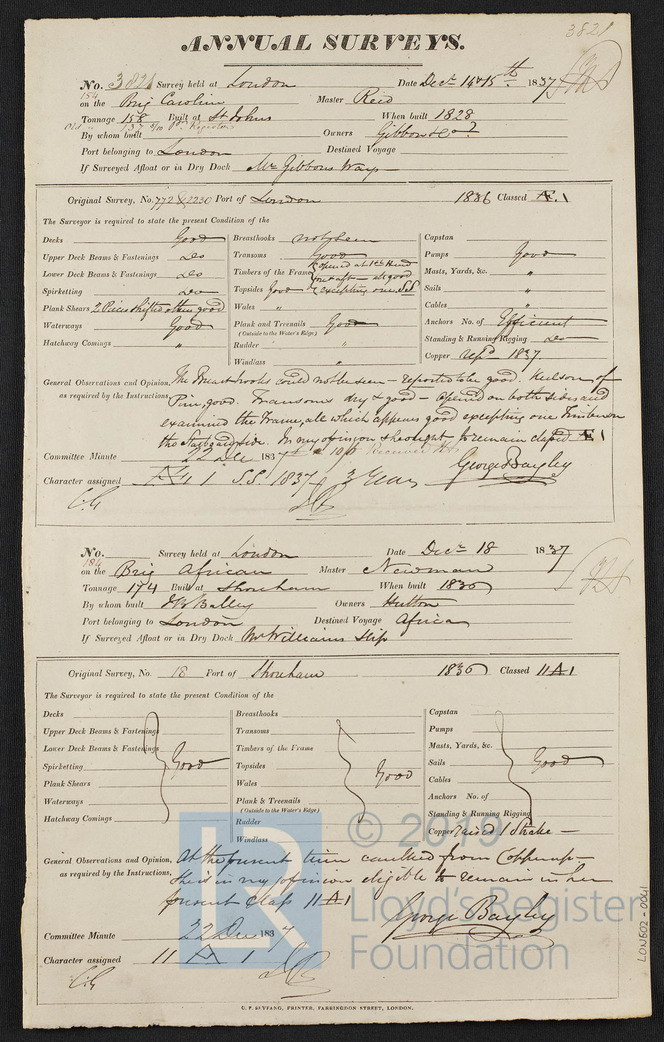 3821
ANNUAL SURVEYS.
No. 3821 Survey held at London Date Decr 14 & 15th 1837
154
on the Brig Caroline Master Reid
Tonnage 158 Built at St Johns When built 1828
Old 137
By whom built Owners Gibbon & Co.
Port belonging to London Destined Voyage
If Surveyed Afloat or in Dry Dock Mr Gibbons Ways
Original Survey, No. 772 & 2230 Port of London 1836 Classed Æ.1
The Surveyor is required to state the present Condition of the
Decks Good Breasthooks not seen Capstan
Upper Deck Beams & Fastenings Do Transoms Good Pumps Good
Lower Deck Beams & Fastenings Do Timbers of the Frame Masts, Yards, &c. "
Spirketting Do Topsides Good excepting one Sails "
Plank Shears 2 Pieces shifted others good Wales " Cables "
Waterways Good Plank and Treenails Good Anchors No. of Efficient
(Outside to the Water's Edge)
Hatchway Comings " Rudder " Standing & Running Rigging Do
Windlass " Copper repd 1837
General Observations and Opinion, The Breasthooks could not be seen - reported to be good. Keelson of
as required by the Instructions, Pine, good. Transoms dry & good - opened on both sides and
examined the Frame, all which appears good excepting one Timber on
the Starboard side. In my opinion she ought to remain classed Æ 1
Committee Minute 22 Dec 1837
George Bayley
Character assigned Æ 1 S.S. 1837 3 Years
C.G
No. Survey held at London Date Decr 18 1837
184
on the Brig African Master Newman
Tonnage 174 Built at Shoreham When built 1836
By whom built J B Balley Owners Hutton
Port belonging to London Destined Voyage Africa
If Surveyed Afloat or in Dry Dock Mr Williams Slip
Original Survey, No. 18 Port of Shoreham 1836 Classed 11 A 1
The Surveyor is required to state the present Condition of the
Decks Breasthooks Capstan
Upper Deck Beams & Fastenings Transoms Pumps
Lower Deck Beams & Fastenings Timbers of the Frame Masts, Yards, &c.
Spirketting Good Topsides Sails Good
Plank Shears Wales Good Cables
Waterways Plank & Treenails Anchors No. of
(Outside to the Water's Edge)
Hatchway Comings Rudder Standing & Running Rigging
Windlass Copper raised 1 Strake
General Observations and Opinion, At the present time caulked from Copper up -
as required by the Instructions, She is in my opinion eligible to remain in her
present Class 11 A 1
George Bayley
Committee Minute 22 Dec 1837
Character assigned 11 A 1
C.G
© 2019
LR
Lloyd's Register
Foundation
LON602-0041
C. F. SEYFANG, PRINTER, FARRINGDON STREET, LONDON.